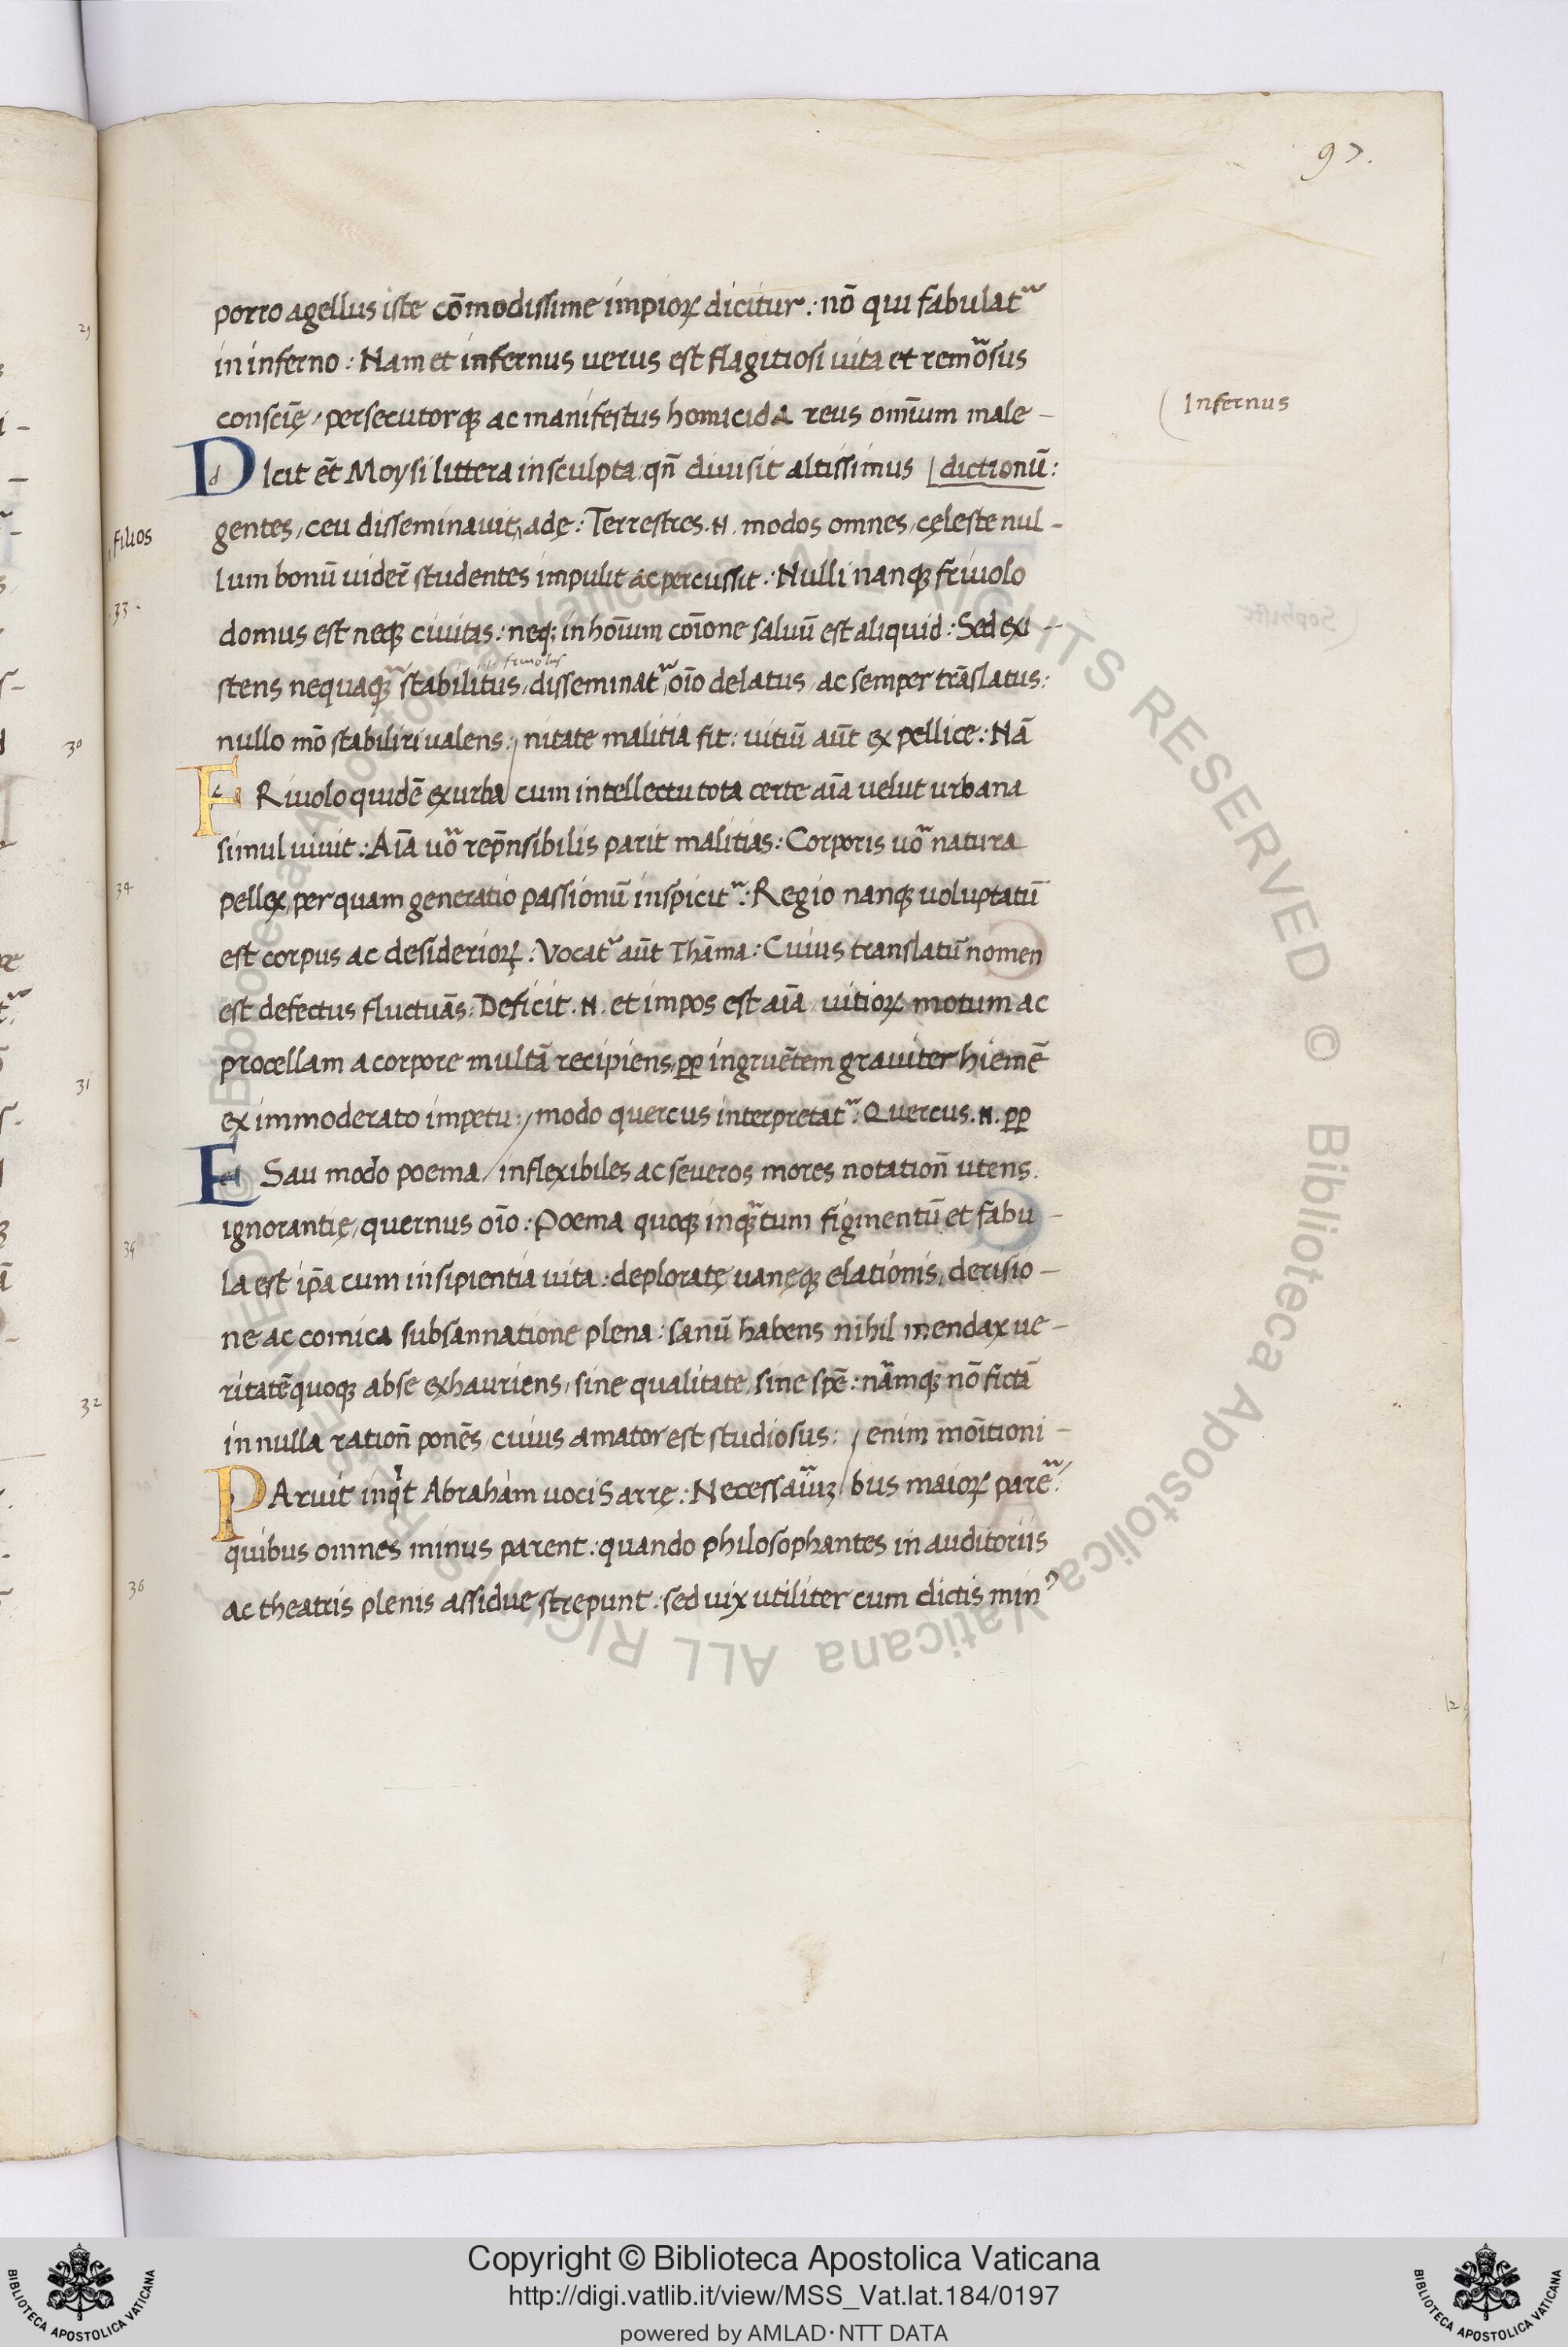 97.
porro agellus iste cōmodissime impioꝝ dicitur: nō qui fabulat᷑
in inferno: Nam et infernus uerus est flagitiosi uita et remo᷑sus
consciē, persecutorqꝫ ac manifestus homicida reus omīum male-
Infernus
DIcit et̄ Moysi littera insculpta. qn̄ divisit altissimus dictionū:
gentes, ceu disseminavit, adę: Terrestres .N. modos omnes, cęleste nul-
filios
lum bonū uider̄ studentes impulit ac percussit: Nulli nanqꝫ frivolo
33
domus est neqꝫ civitas: neqꝫ in hoīum coīone saluū est aliquid: Sed exi-
frivolus
stens nequaqꝫ᷑ stabilitus, disseminat᷑, oīo delatus, ac semper trāslatus:
nullo mō stabiliri ualens: nitate malitia fit: uitiū aūt ex pellice: Nā
FRiuolo quidē ex urba cum intellectu tota certe aīa velut urbana
simul uiuit: Aīa uo᷑ rep̄nsibilis parit malitias: Corporis uo᷑ natura
34
pellex, per quam generatio passionū inspicit᷑: Regio nanqꝫ uoluptatū
est corpus ac desiderioꝝ: Vocat᷑ aūt Thāma: Cuius translatū nomen
est defectus fluctuās: Deficit .N. et impos est aīa uitioꝝ motum ac
procellam a corpore multā recipiens, ꝑꝑ ingruētem graviter hiemē
ex immoderato impetu: modo quercus interpretat᷑: Quercus .N. ꝑꝑ
ESau modo poema, inflexibiles ac severos mores notation̄ utens.
ignorantię, quernus oīo: Poema quoqꝫ inqꝫ᷑tum figmentū et fabu-
35
la est ip̄a cum insipientia uita: deploratę uanęqꝫ elationis, derisio-
ne ac comica subsannatione plena: sanū habens nihil mendax ue-
ritatēquoqꝫ abse exhauriens, sine qualitate, sine spē: nāmqꝫ nō fictā
in nulla ration̄ ponēs, cuius amator est studiosus: enim mōītioni-
PAruit inqͥt Abraham uoci Sarrę: Necessa᷑iuꝫ bus maioꝝ parē᷑:
quibus omnes minus parent: quando philosophantes in auditoriis
36
ac theatris plenis assidue strepunt: sed uix utiliter cum dictis minꝰ
29
30
31
32
© Biblioteca Apostolica Vaticana ALL RIGHTS RESERVED
Copyright © Biblioteca Apostolica Vaticana
http://digi.vatlib.it/view/MSS_Vat.lat.184/0197
powered by AMLAD·NTT DATA
BIBLIOTECA APOSTOLICA VATICANA
BIBLIOTECA APOSTOLICA VATICANA